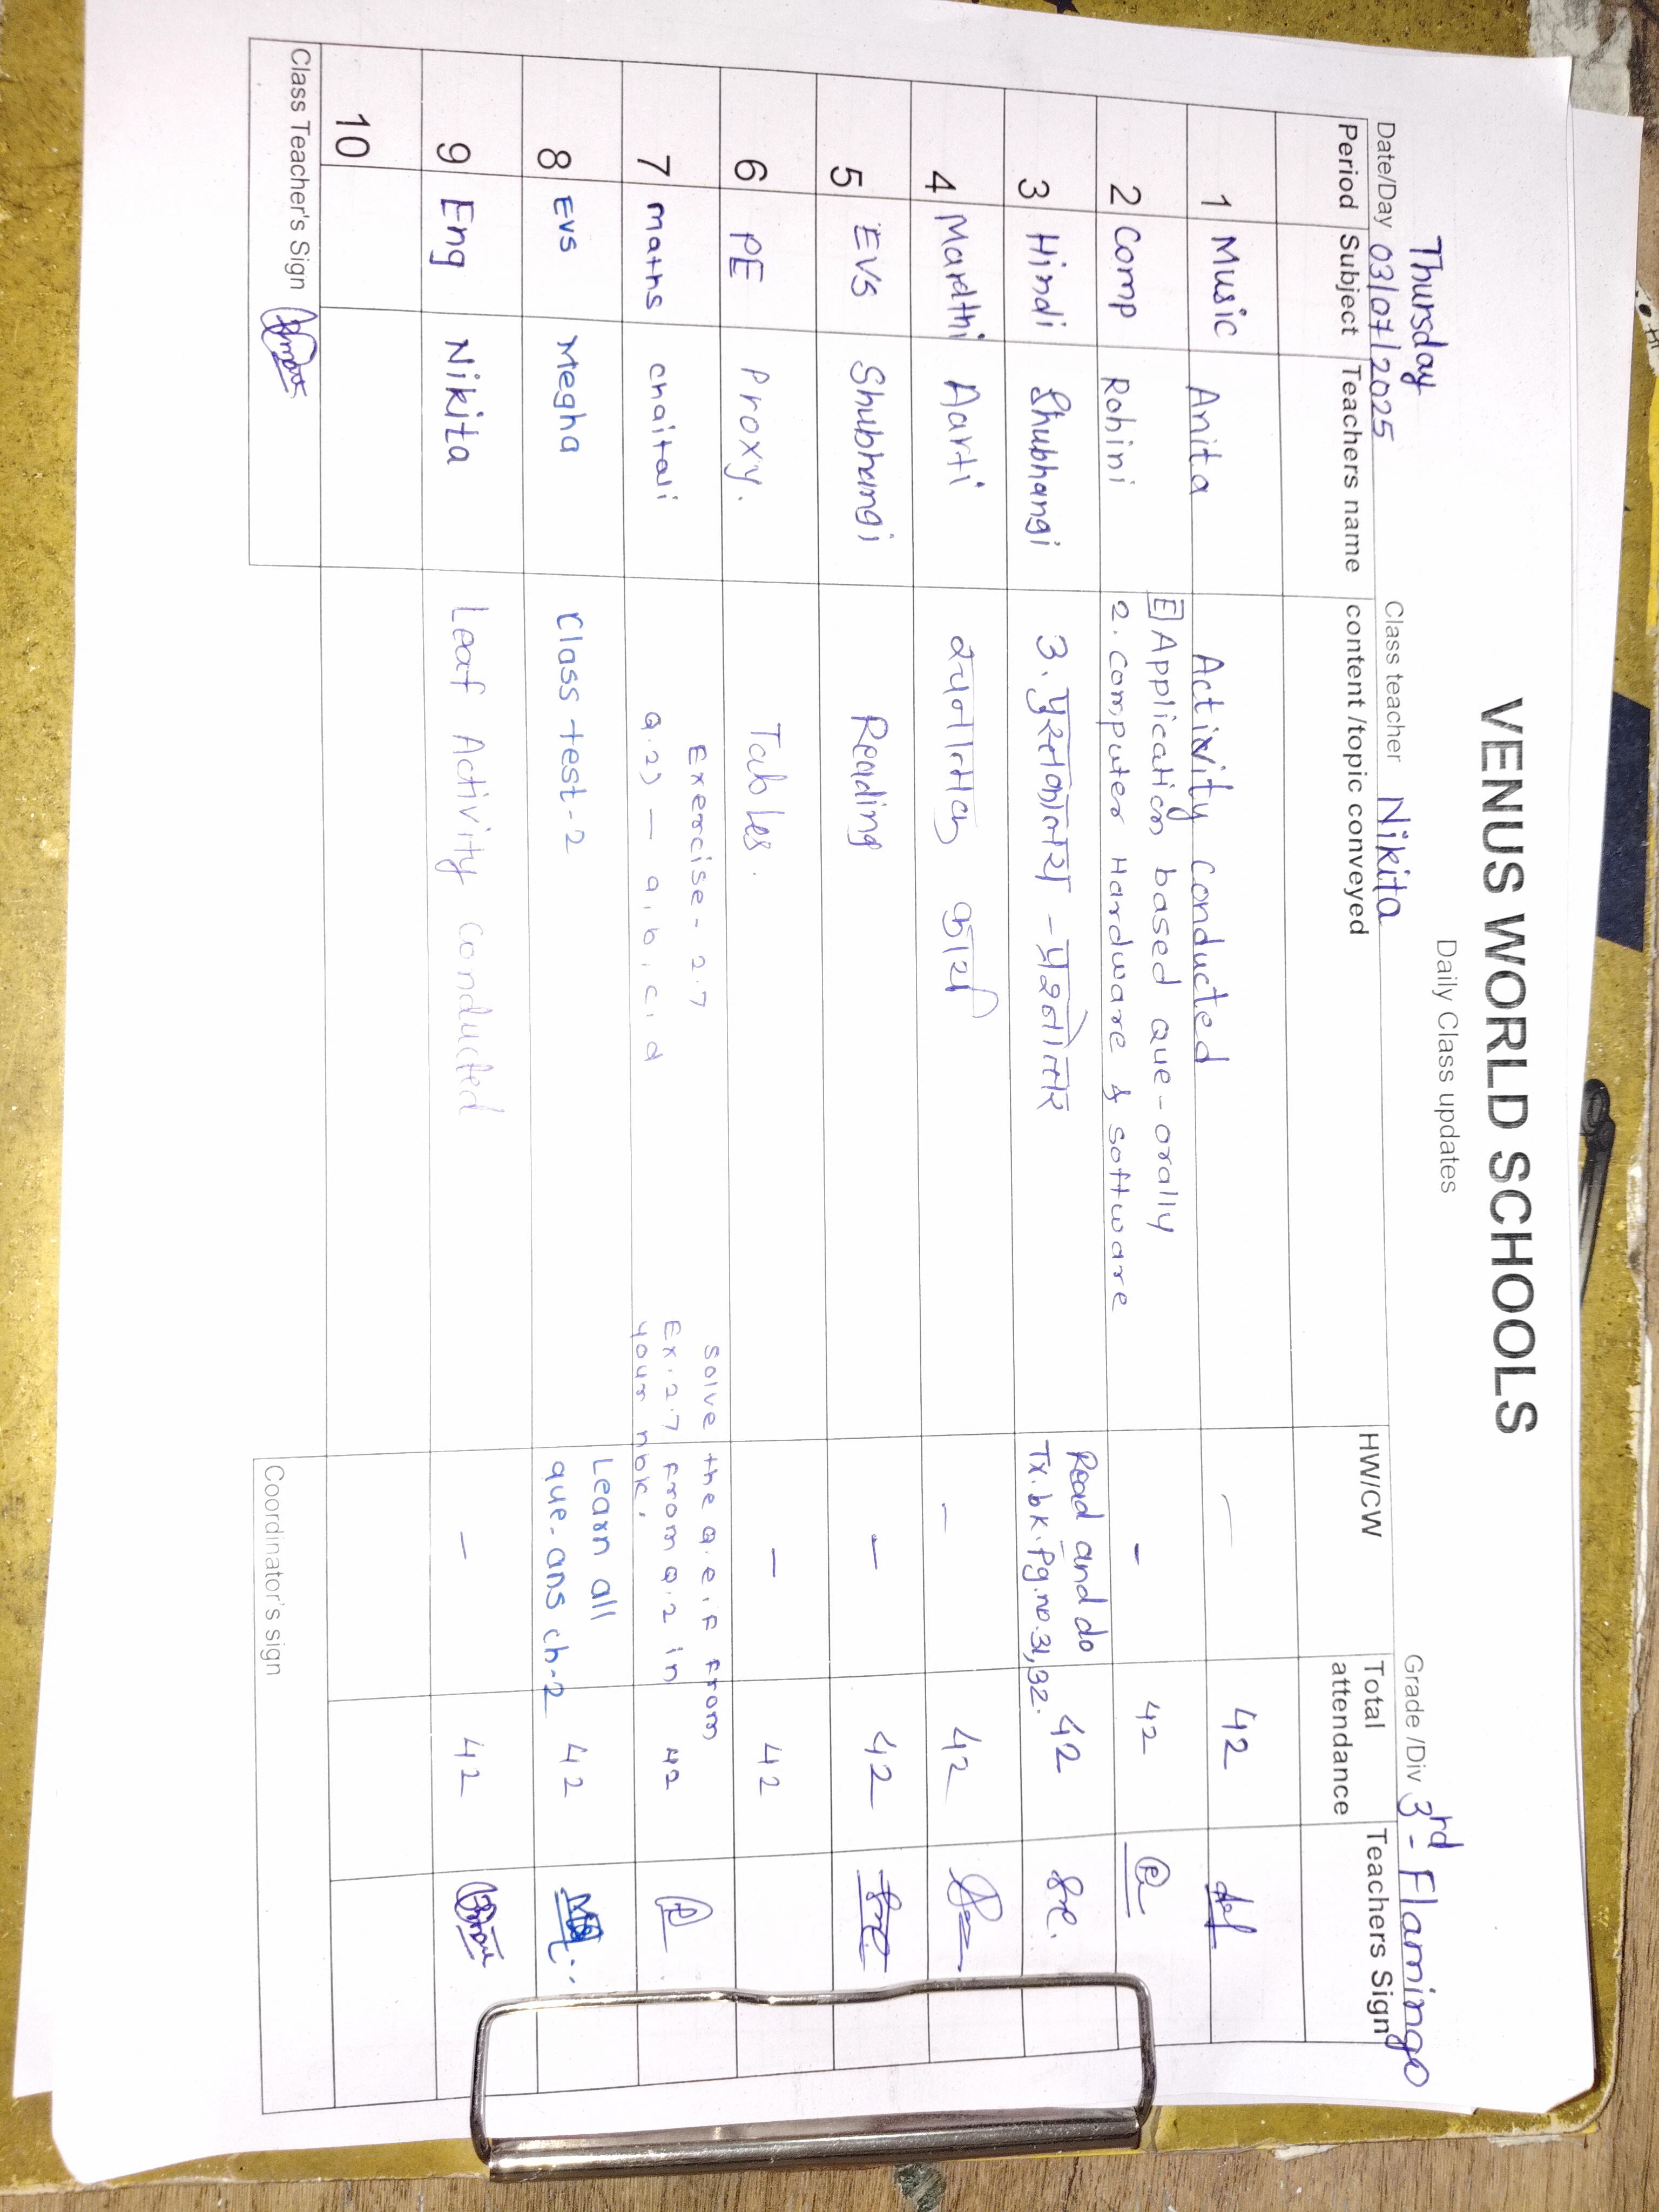 VENUS WORLD SCHOOLS
Daily Class updates
Thursday
Date/Day 03/07/2025 Class teacher Nikita Grade /Div 3rd - Flamingo
Period Subject Teachers name content /topic conveyed HW/CW Total attendance Teachers Sign
1 Music Anita Activity conducted — 42
E Application based que - orally
2 Comp Rohini 2. computer Hardware & software - 42
3 Hindi Shubhangi 3. पुस्तकालय - प्रश्नोत्तर Read and do
Tx. bk. Pg. no. 31, 32. 42
4 Marathi Aarti रचनात्मक कार्य — 42
5 EVS Shubhangi Reading — 42
6 PE Proxy. Tables. — 42
7 maths chaitali Exercise - 2.7
Q.2) — a, b, c, d
solve the Q. e, f from
Ex. 2.7 from Q. 2 in
your nbk. 42
8 EVS Megha Class test - 2 Learn all
que- ans ch-2 42
9 Eng Nikita Leaf Activity Conducted — 42
10
Class Teacher's Sign Coordinator's sign